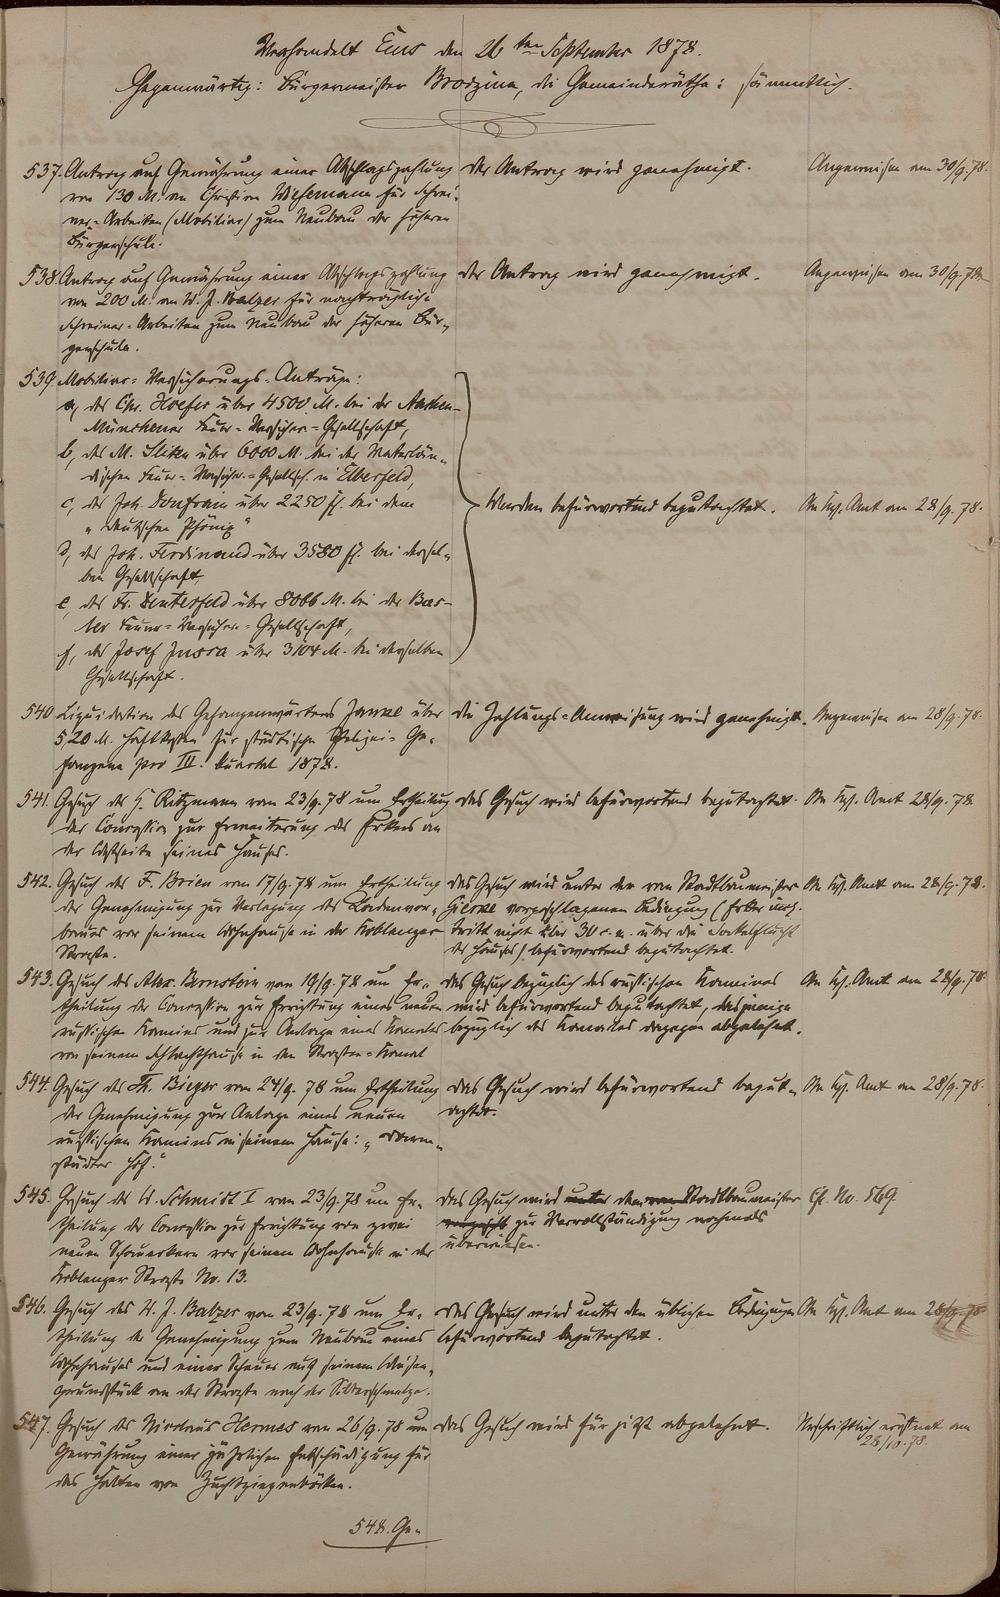 Verhandelt Ems den 26ten September 1878.
Gegenwärtig: Bürgermeister Brodzina, die Gemeinderäthe: sämmtlich.
537. Antrag auf Gewährung einer Abschlagszahlung
von 130 M. an Christian Wiesemann für Schrei-
ner-Arbeiten (Mobiliar) zum Neubau der höheren
Bürgerschule.
Der Antrag wird genehmigt.
Angewiesen am 30/9.78.
538. Antrag auf Gewährung einer Abschlagszahlung
von 200 M. an W. J. Balzer für nachträgliche
Schreiner-Arbeiten zum Neubau der höheren Bür-
gerschule.
Der Antrag wird genehmigt.
Angewiesen am 30/9.78.
539. Mobiliar-Versicherungs-Anträge:
a, des Chr. Hoefer über 4500 M. bei der Aachen-
Münchener Feuer-Versicher.-Gesellschaft,
b, des M. über 6000 M. bei der Vaterlän-
dischen Feuer-Versicher.-Gesellsch. in Elberfeld,
c, des Joh. über 2250 fl. bei dem
"Deutschen Phönix"
d, des Joh. Ferdinand über 3580 fl. bei dersel-
ben Gesellschaft,
e, des Fr. über 8086 M. bei der Bas-
ler Feuer-Versicher.-Gesellschaft,
f, des Josef über 3104 M. bei derselben
Gesellschaft.
Werden befürwortend begutachtet.
An Kgl. Amt am 28/9.78.
540. Liquidation des Gefangenwärters Janke über
5,20 M. Haftkosten für städtische Polizei-Ge-
fangene pro III. Quartal 1878.
Die Zahlungs-Anweisung wird genehmigt.
Angewiesen am 28/9.78.
541. Gesuch des H. Ritzmann vom 23/9.78 um Ertheilung
der Concession zur Erweiterung des Erkers an
der Westseite seines Hauses.
Das Gesuch wird befürwortend begutachtet.
An Kgl. Amt 28/9.78
542. Gesuch des F. Brien vom 17/9.78 um Ertheilung
der Genehmigung zur Verlegung des Ladenvor-
baues vor seinem Wohnhause in der Koblenzer
Strasse.
Das Gesuch wird unter der vom Stadtbaumeister
vorgeschlagenen Bedingung (Erker
tritt nicht über 30 c.m. über die Sockelflucht
des Hauses) befürwortend begutachtet.
An Kgl. Amt am 28/9.78.
543. Gesuch des Alex. Bernstein vom 19/9.78 um Er-
theilung der Concession zur Errichtung eines neuen
russischen Kamins und zur Anlage eines Kanales
von seinem Schlachthause in den Strassen-Kanal
Das Gesuch bezüglich des russischen Kamines
wird befürwortend begutachtet, dasjenige
bezüglich des Kanales dagegen abgelehnt.
An Kgl. Amt am 28/9.78
544. Gesuch des Th. Bieger vom 24/9.78 um Ertheilung
der Genehmigung zur Anlage eines neuen
russischen Kamins in seinem Hause: "Darm-
städter Hof."
Das Gesuch wird befürwortend begut-
achtet.
An Kgl. Amt am 28/9.78.
545. Gesuch des W. Schmidt I vom 23/9.78 um Er-
theilung der Concession zur Errichtung von zwei
neuen vor seinem Wohnhause in der
Koblenzer Strasse No. 13.
Das Gesuch wird unter dem vom Stadtbaumeister
zur Vervollständigung nochmals
überwiesen.
Cf. No. 569
546. Gesuch des W. J. Balzer vom 23/9.78 um Er-
theilung der Genehmigung zum Neubau eines
Wohnhauses und einer Scheuer auf seinem Wiesen-
grundstück an der Strasse nach der Silberschmelze.
Das Gesuch wird unter den üblichen Bedingungen
befürwortend begutachtet.
An Kgl. Amt am 28/9.78
547. Gesuch des Nicolaus Hermes vom 26/9.78 um
Gewährung einer jährlichen Entschädigung für
das Halten von Zuchtziegenböcken.
Das Gesuch wird für jetzt abgelehnt.
eröffnet am
28/10.78.
548. Ge-